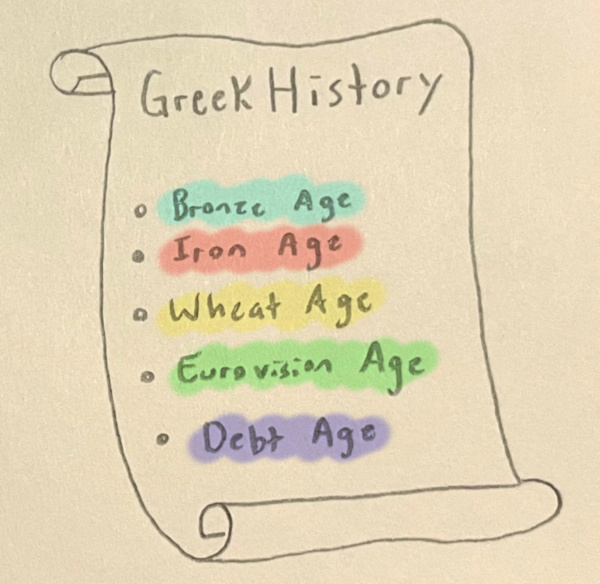 Greek History
Bronze Age
Iron Age
Wheat Age
Eurovision Age
Debt Age